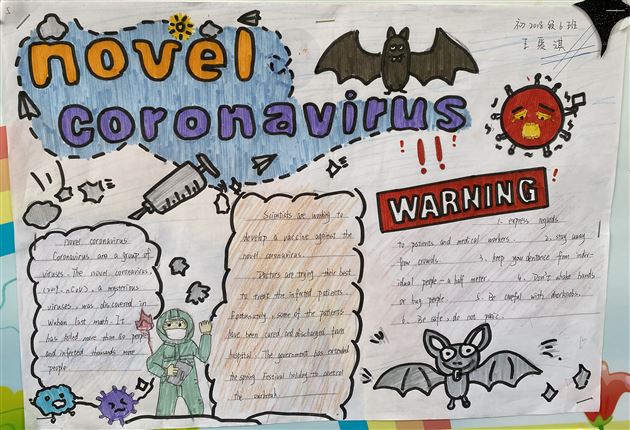 novel
coronavirus
初2018级6班
王
WARNING
novel coronavirus
Coronavirus are a group of
viruses. The novel coronavirus,
(2019-nCoV), a mysterious
viruses, was discovered in
Wuhan last month. It
has killed more than 60 people
and infected thousands more
people
Scientists are working to
develop a vaccine against the
novel coronavirus.
Doctors are trying their best
to treat the infected patients.
Fortunately, some of the patients
have been cured and discharged from
hospital. The government has extended
the spring Festival holiday to control
the outbreak.
1. express regards
to patients and medical workers 2. stay away
from crowds. 3. keep your distance from indiv-
idual people-a half meter 4. Don't shake hands
or hug people. 5. Be careful with doorknobs.
6. Be safe, do not panic.